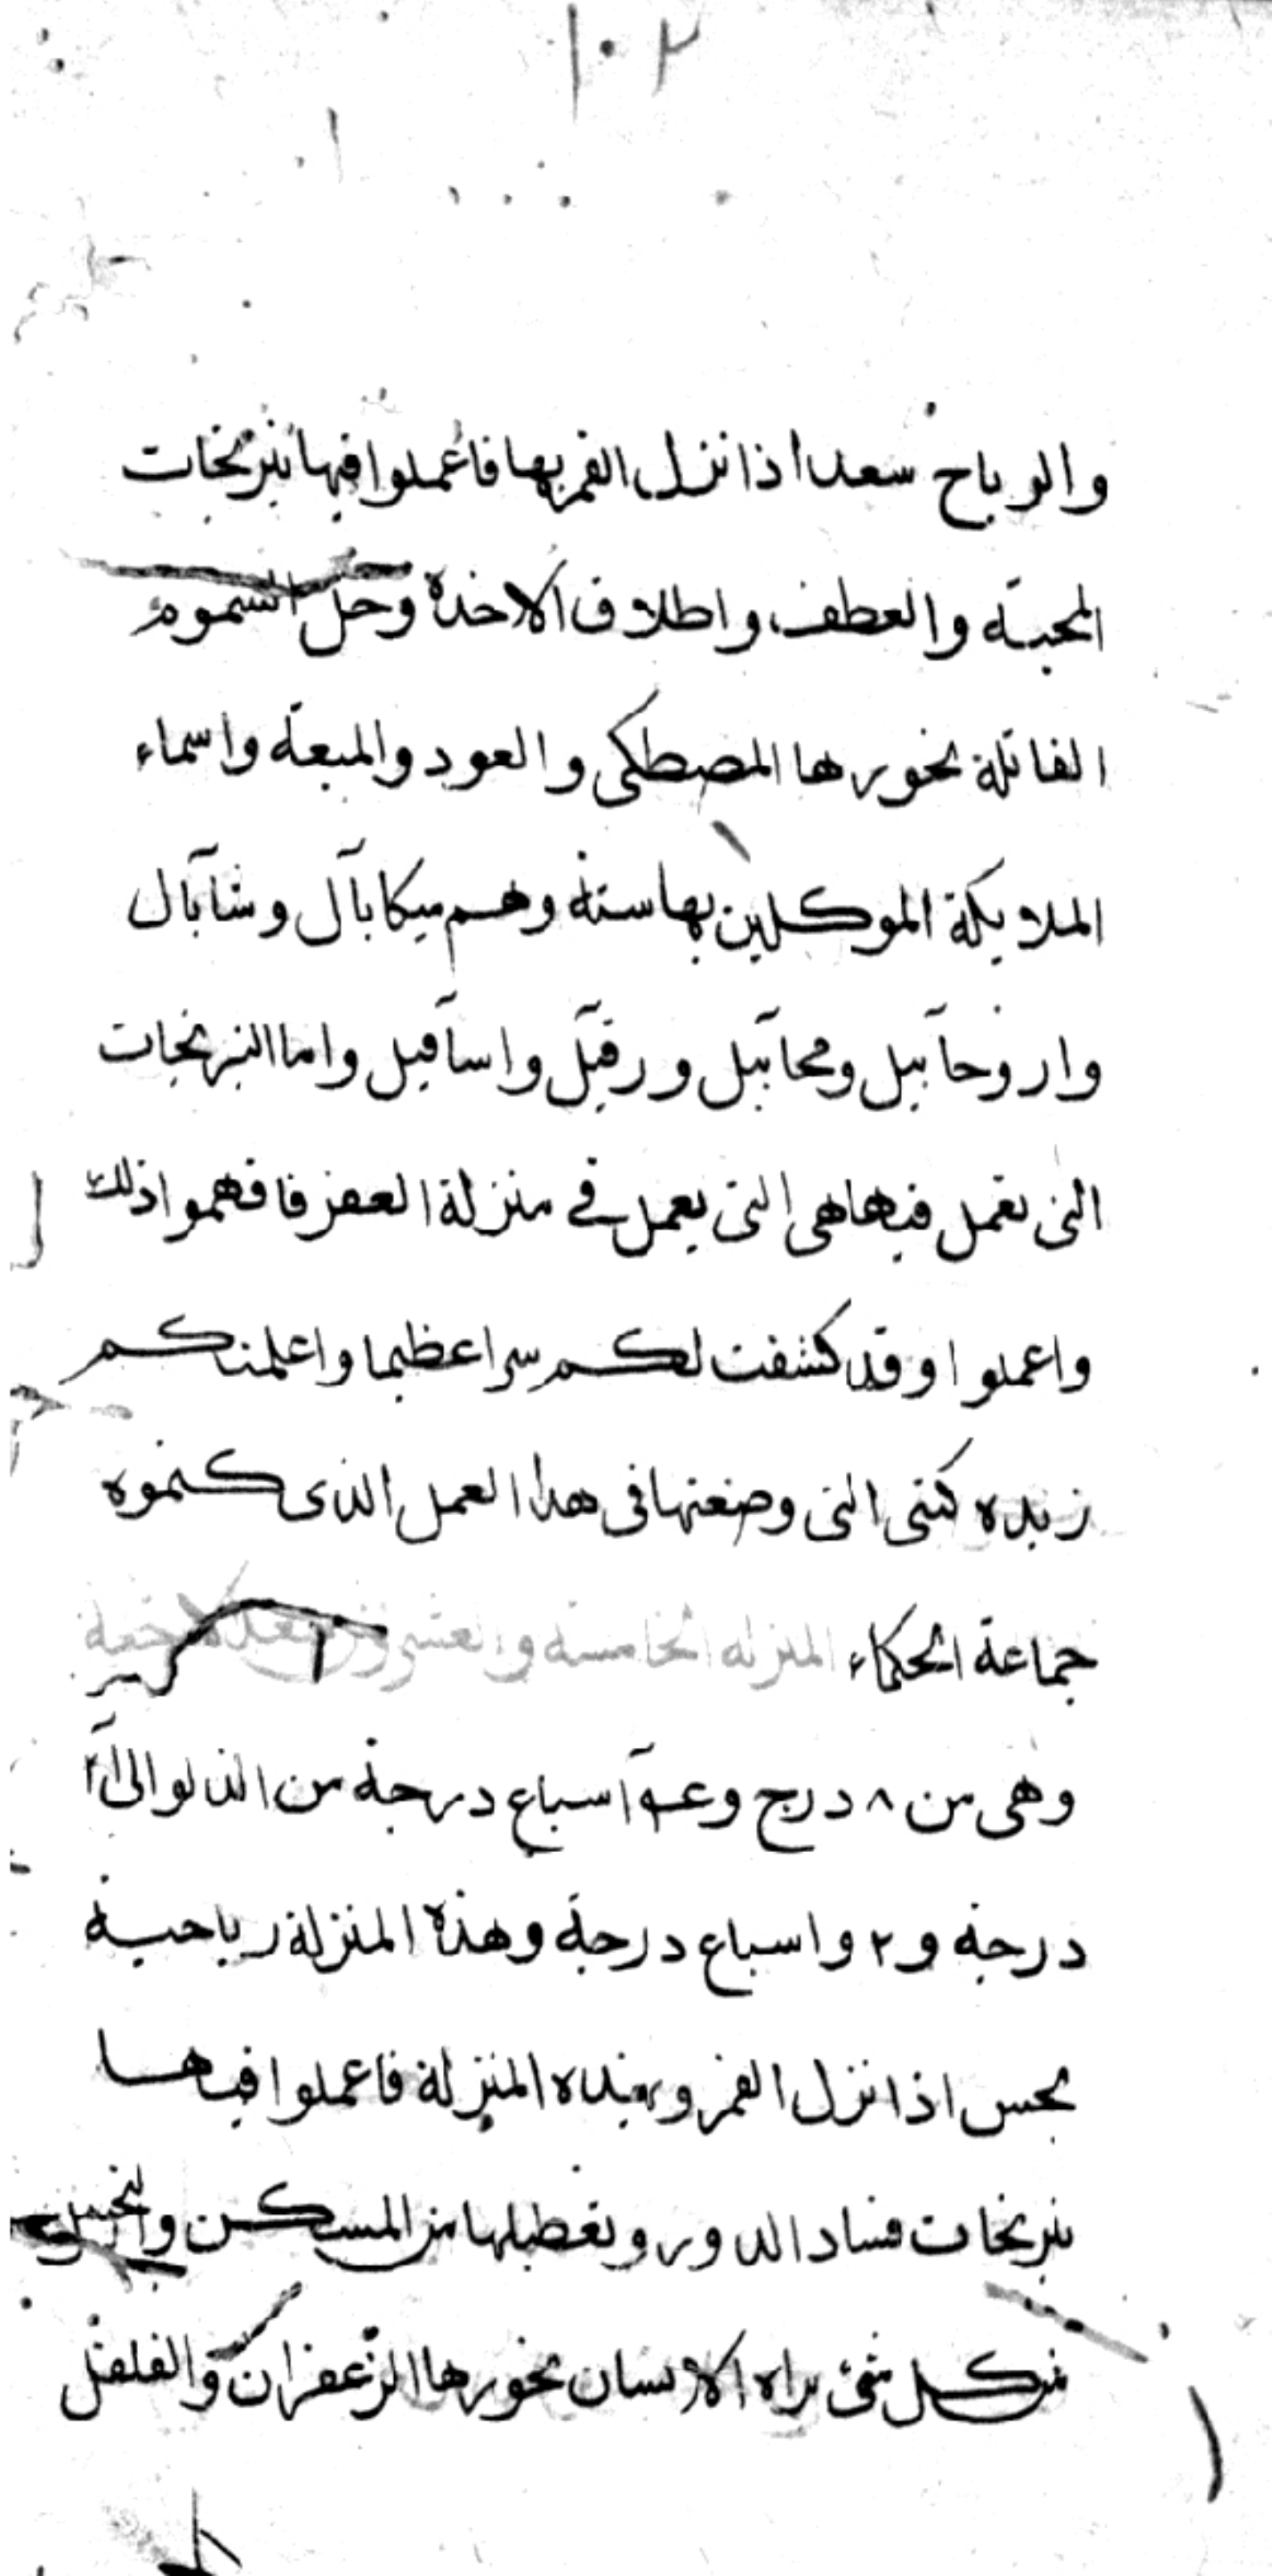 ١٠٢
والرياح سعد اذا نزل القمر بها فاعملوا فيها نيرنجات
المحبة والعطف واطلاق الاخذة وحل السموم
القاتلة بخورها المصطكى والعود والميعة واسماء
الملايكة الموكلين بها ستة وهم ميكابآل وشآبآل
واروحآبيل ومحآبيل ورقيل واسآقيل واما النيرنجات
التى تعمل فيها هى التى يعمل فى منزلة العفر فافهموا ذلك
واعملوا وقد كشفت لكم سرا عظيما واعلمناكم
زبده كتبى التى وضعتها فى هذا العمل الذى كتموه
جماعة الحكماء المنزله الخامسة والعشرون سعد الاخبية
وهى من ٨ درج وع٤ اسباع درجة من الدلو الى ٢١
درجة و٣ واسباع درجة وهذه المنزلة رياحية
نحس اذا نزل القمر وبهذه المنزلة فاعملوا فيها
نيرنجات فساد الدور وتعطيلها من المسكن
من كل شئ يراه الانسان بخورها الزعفران والفلفل